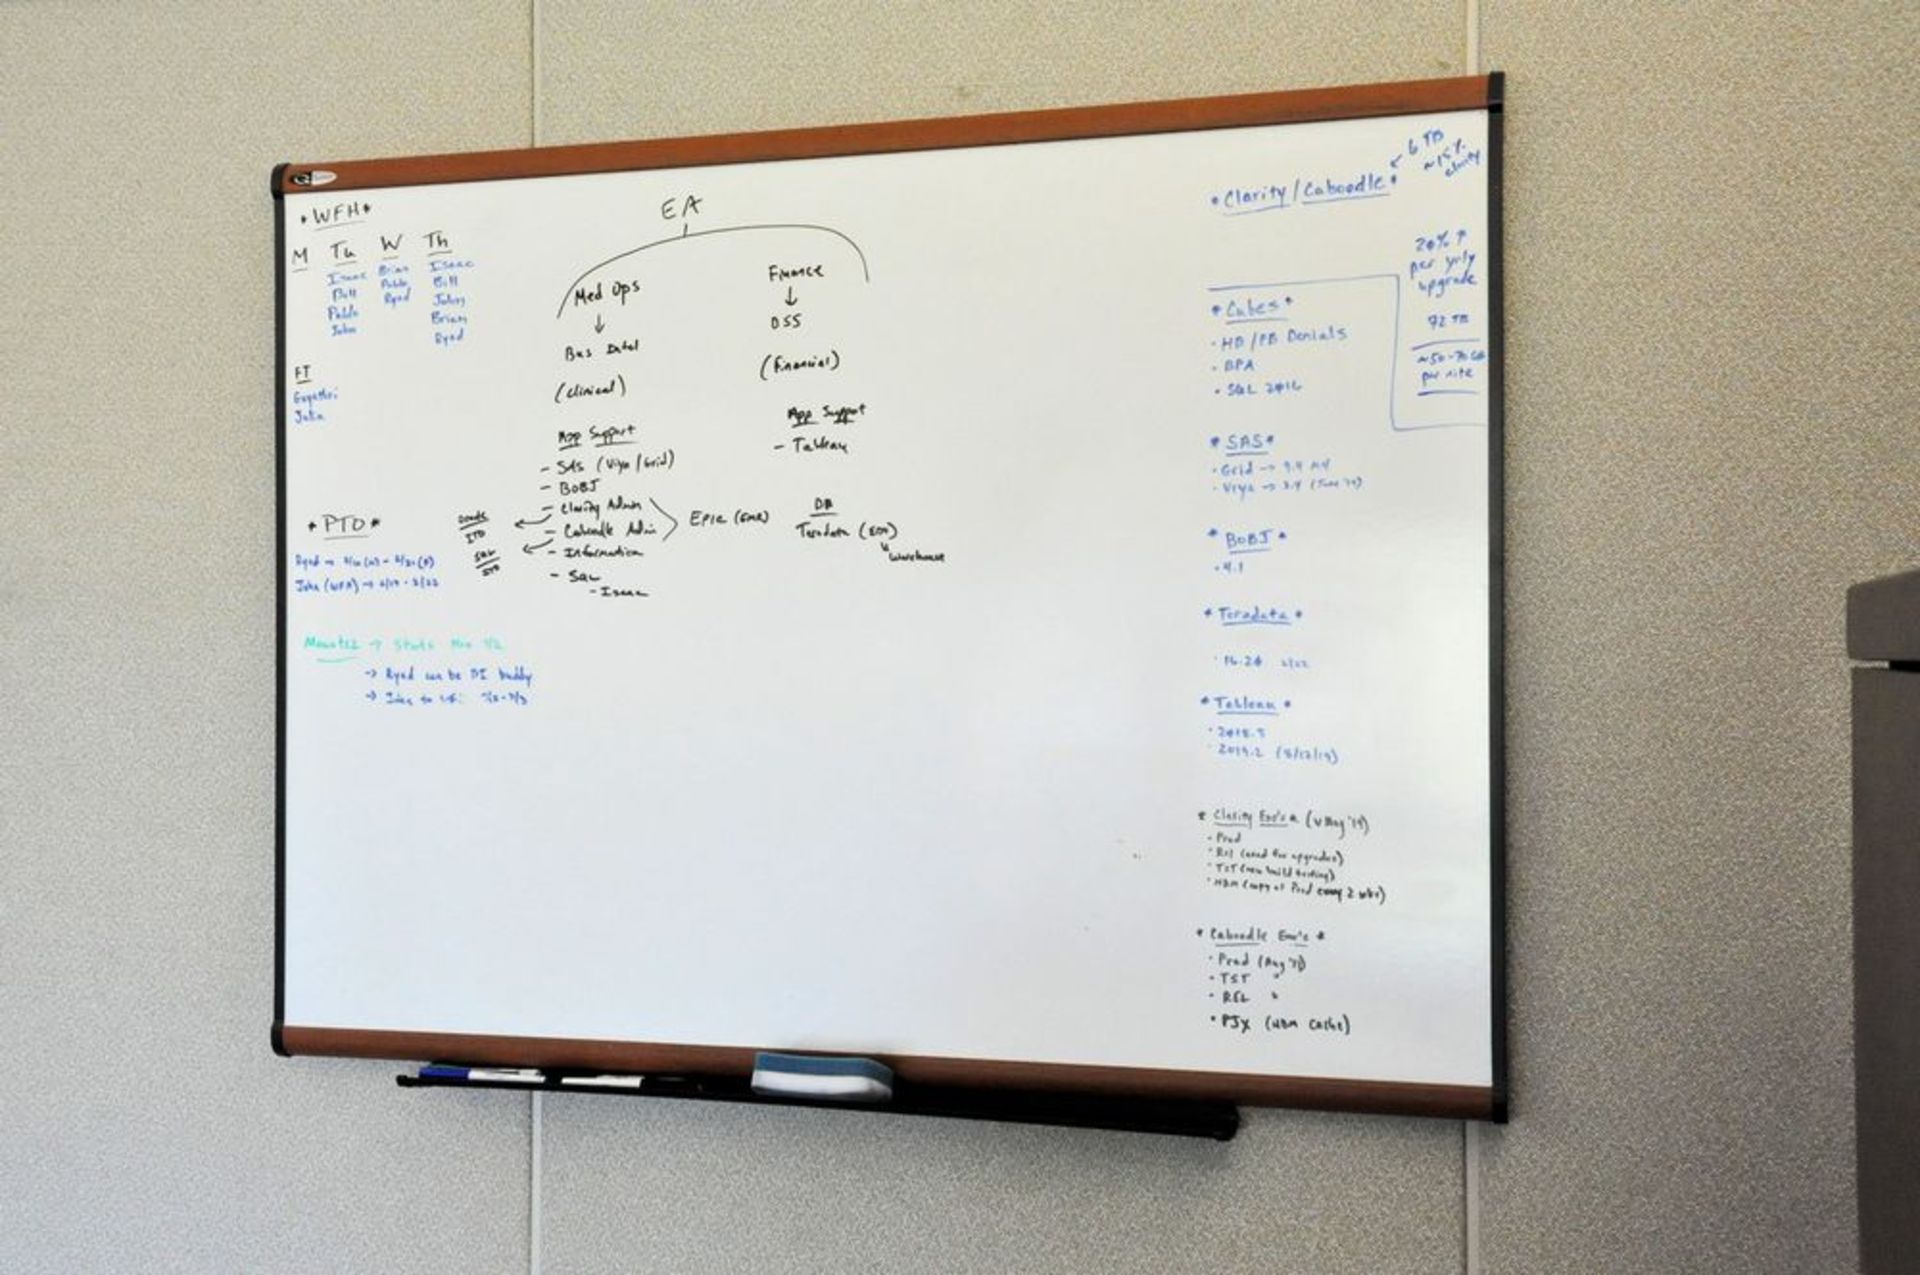 * WFH *
M Tu W Th
Isaac Brian Isaac
Bill Pablo Bill
Pablo Ryad John
John Brian
Ryad
FT
Gayathri
Julia
* PTO *
John (WFA) →
→ Stats
→ Ryad can be BI buddy
EA
Med Ops
↓
Bus Intel
(clinical)
App Support
- SAS (Viya / Grid)
- BOBJ
- Clarity Admin
- Caboodle Admin
- Information
- SQL
- Isaac
Epic (EMR)
Finance
↓
DSS
(Financial)
App Support
- Tableau
DB
Teradata (EDW)
Warehouse
* Clarity / Caboodle *
6 TB
~15%
clarity
20% ↑
per yrly
upgrade
72 TB
~50-70 GB
per nite
* Cubes *
· HB / PB Denials
· BPA
· SQL 2016
* SAS *
· Grid → 9.4 M4
· Viya → 3.4 (June '19)
* BOBJ *
· 4.1
* Teradata *
· 16.20
* Tableau *
· 2018.3
· 2019.2 (8/12/19)
* Clarity Env's * (V May '19)
· Prod
· Rel (used for upgrades)
· TST (new build testing)
(copy of Prod every 2 wks)
* Caboodle Env's *
· Prod (Aug '18)
· TST "
· REL "
· PJX